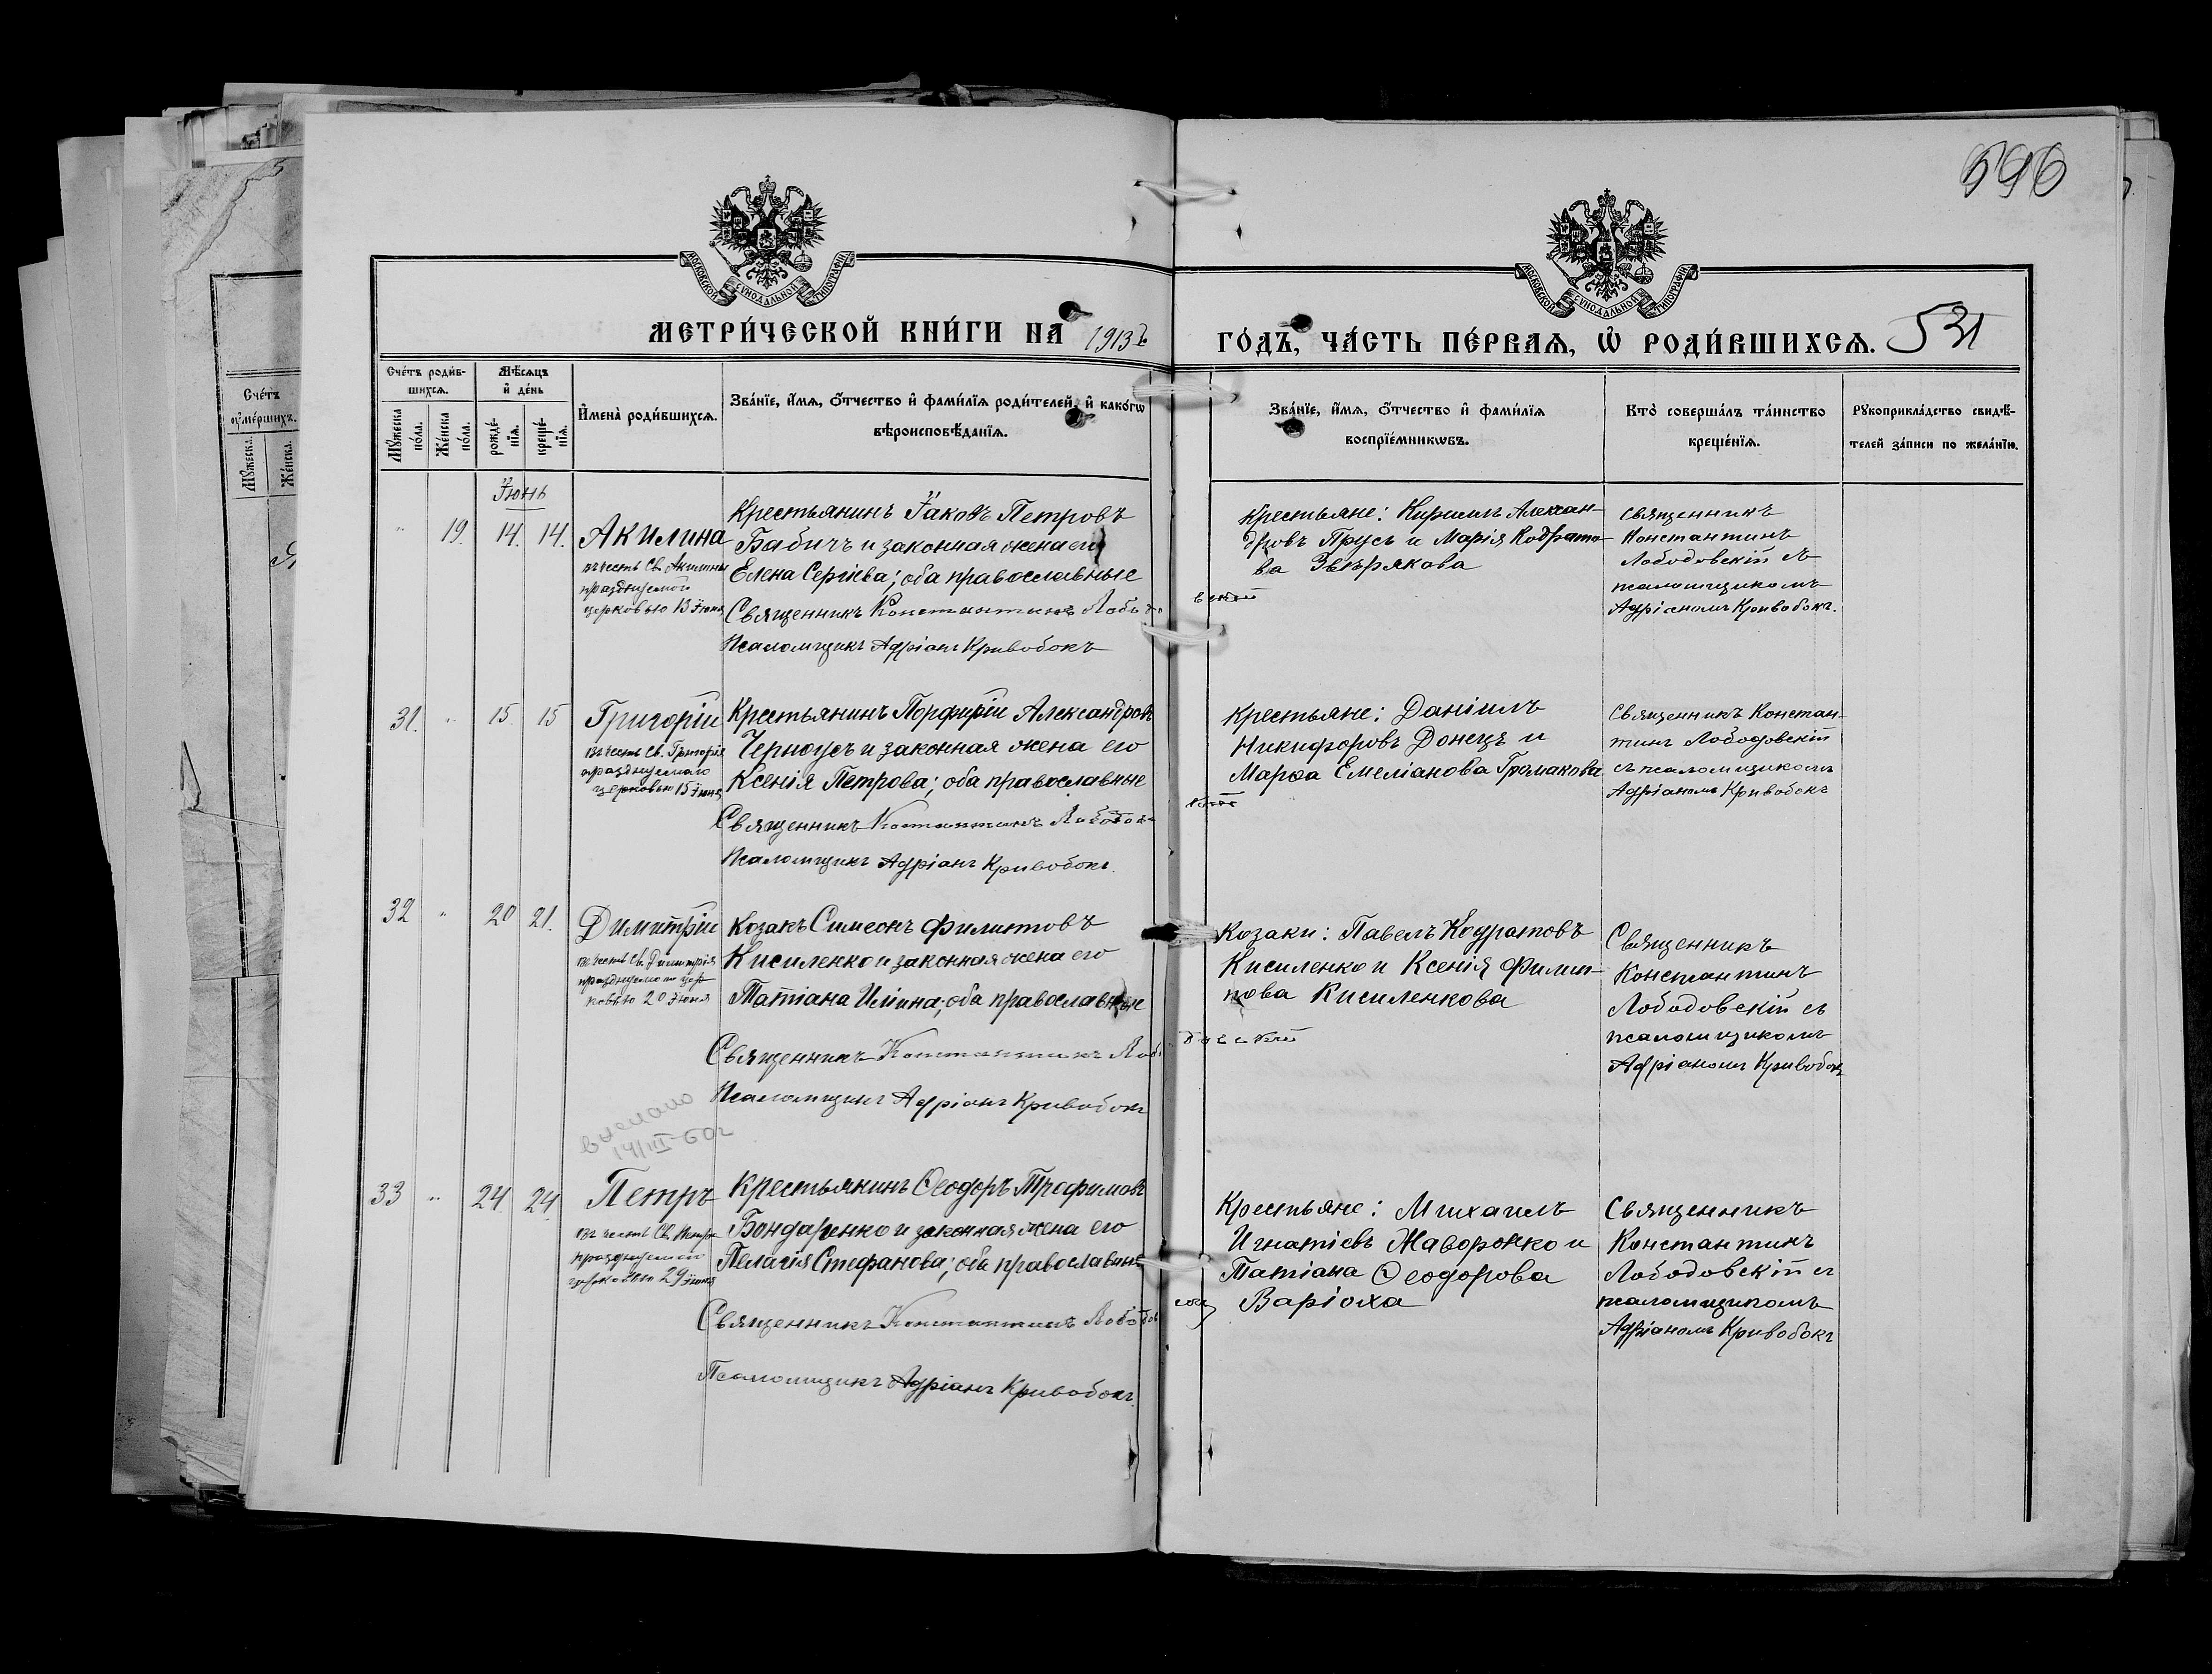 596
МОСКОВСКОЙ СѴНОДАЛЬНОЙ ТИПОГРАФІИ
МОСКОВСКОЙ СѴНОДАЛЬНОЙ ТИПОГРАФІИ
МЕТРИ́ЧЕСКОЙ КНИ́ГИ НА 1913й
ГО́ДЪ, ЧА́СТЬ ПЕ́РВАЯ, Ѡ РОДИ́ВШИХСЯ. 531
Сче́тъ роди́в-
шихся.
Му́жеска по́ла.
Же́нска по́ла.
Мѣ́сяцъ
и де́нь
рожде́-
нія.
креще́-
нія.
И́мена роди́вшихся.
Зва́ніе, и́мя, о́тчество и фами́лія роди́телей, и како́гѡ
вѣроисповѣ́данія.
Зва́ніе, и́мя, о́тчество и фами́лія
воспріе́мникѡвъ.
Кто̀ соверша́лъ та́инство
креще́нія.
Рукоприкла́дство свидѣ́-
телей за́писи по жела́нію.
Сче́тъ
ѹме́ршихъ.
Му́жеска.
Же́нска.
Іюнь
" 19. 14. 14.
Акилина
въ честь Св. Акилины
празднуемой
церковью 13 Іюня
Крестьянинъ Іаковъ Петровъ
Бабичъ и законная жена его
Елена Сергіева; оба православные
Священникъ Константинъ Лободо
вскій
Псаломщикъ Адріанъ Кривобокъ
Крестьяне: Кириллъ Алексан-
дровъ Прусъ и Марія Кодрато-
ва Звѣрякова
Священникъ
Константинъ
Лободовскій съ
псаломщикомъ
Адріаномъ Кривобокъ.
31. " 15 15
Григорій
въ честь Св. Григорія
празднуемаго
церковью 15 Іюня
Крестьянинъ Порфирій Александровъ
Черноусъ и законная жена его
Ксенія Петрова; оба православные
Священникъ Константинъ Лободов
Псаломщикъ Адріанъ Кривобокъ.
Крестьяне: Даніилъ
Никифоровъ Донецъ и
Марѳа Емеліанова Громакова
Священникъ Констан-
тинъ Лободовскій
съ псаломщикомъ
Адріаномъ Кривобокъ
32 " 20 21.
Димитрій
въ честь Св. Димитрія
цер-
ковью 20 Іюня
Козакъ Симеонъ Филиповъ
Кисиленко и законная жена его
Татіана Иліина; оба православные
Священникъ Константинъ Лоб
Псаломщикъ Адріанъ Кривобокъ
Козаки: Павелъ Кодратовъ
Кисиленко и Ксенія Филип-
пова Кисиленкова
Священникъ
Константинъ
Лободовскій съ
псаломщикомъ
Адріаномъ Кривобокъ
выслано
14/III-60г
33 " 24 24.
Петръ
въ честь Св. Петра
празднуемаго
церковью 29 Іюня
Крестьянинъ Ѳеодоръ Трофимовъ
Бондаренко и законная жена его
Пелагія Стефанова; оба православные
Священникъ Константинъ Лободов
Псаломщикъ Адріанъ Кривобокъ.
Крестьяне: Михаилъ
Игнатіевъ Жаворонко и
Татіана Ѳеодорова
Варіоха
Священникъ
Константинъ
Лободовскій съ
псаломщикомъ
Адріаномъ Кривобокъ